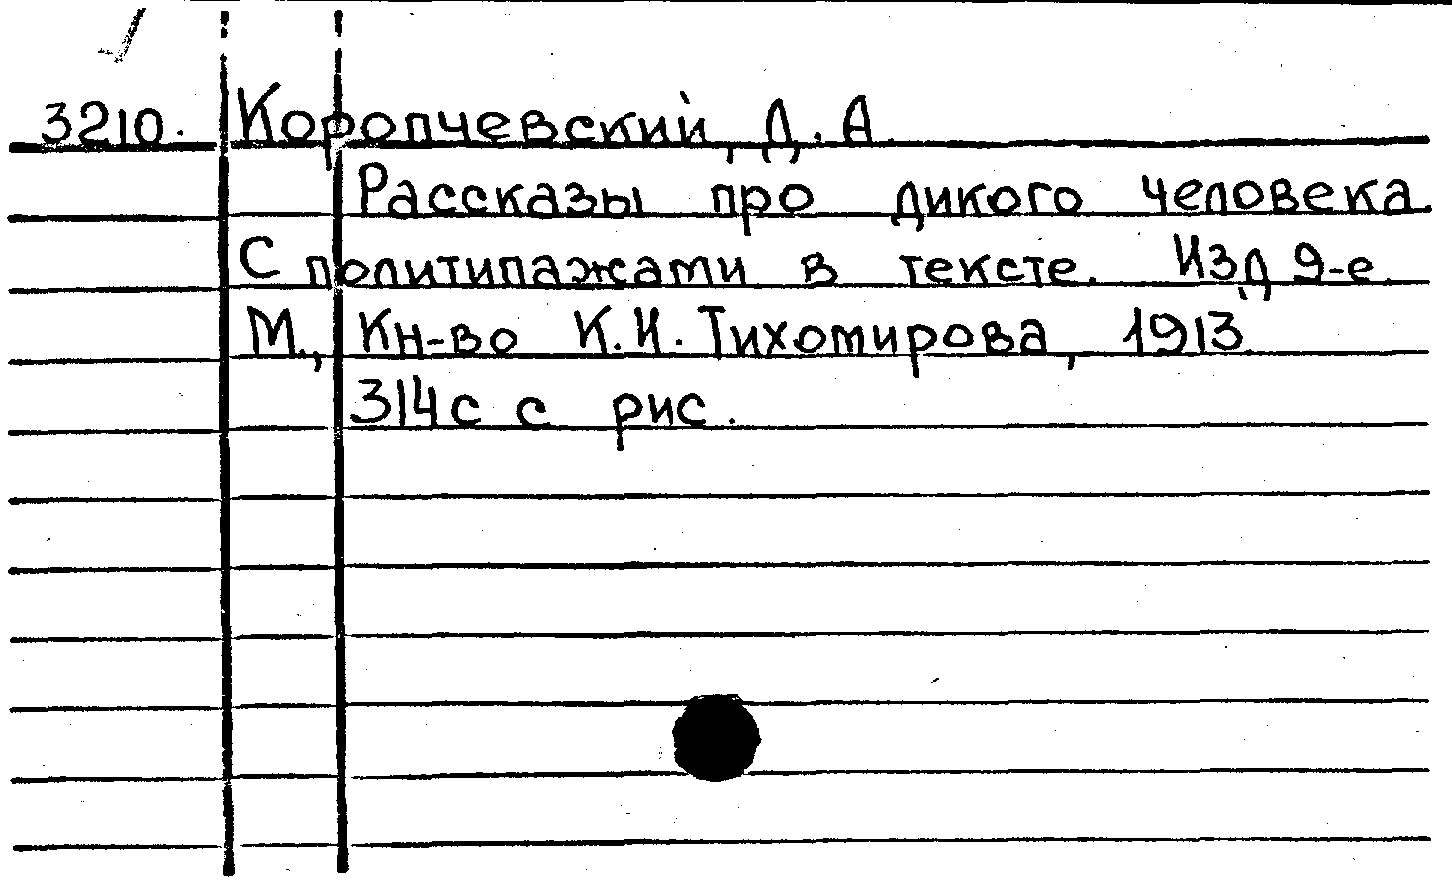 3210. Коропчевский, Д. А.
Рассказы про дикого человека.
С политипажами в тексте. Изд 9-е.
М., Кн-во К.И. Тихомирова, 1913
314с с рис.